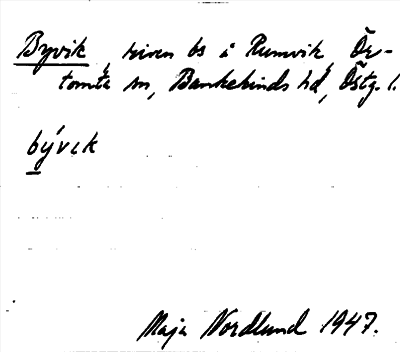 Byvik, riven bs å Rumvik, Ör-
tomta sn, Bankekinds hd, Östg. l.
býv​ık
Maja Nordlund 1947.